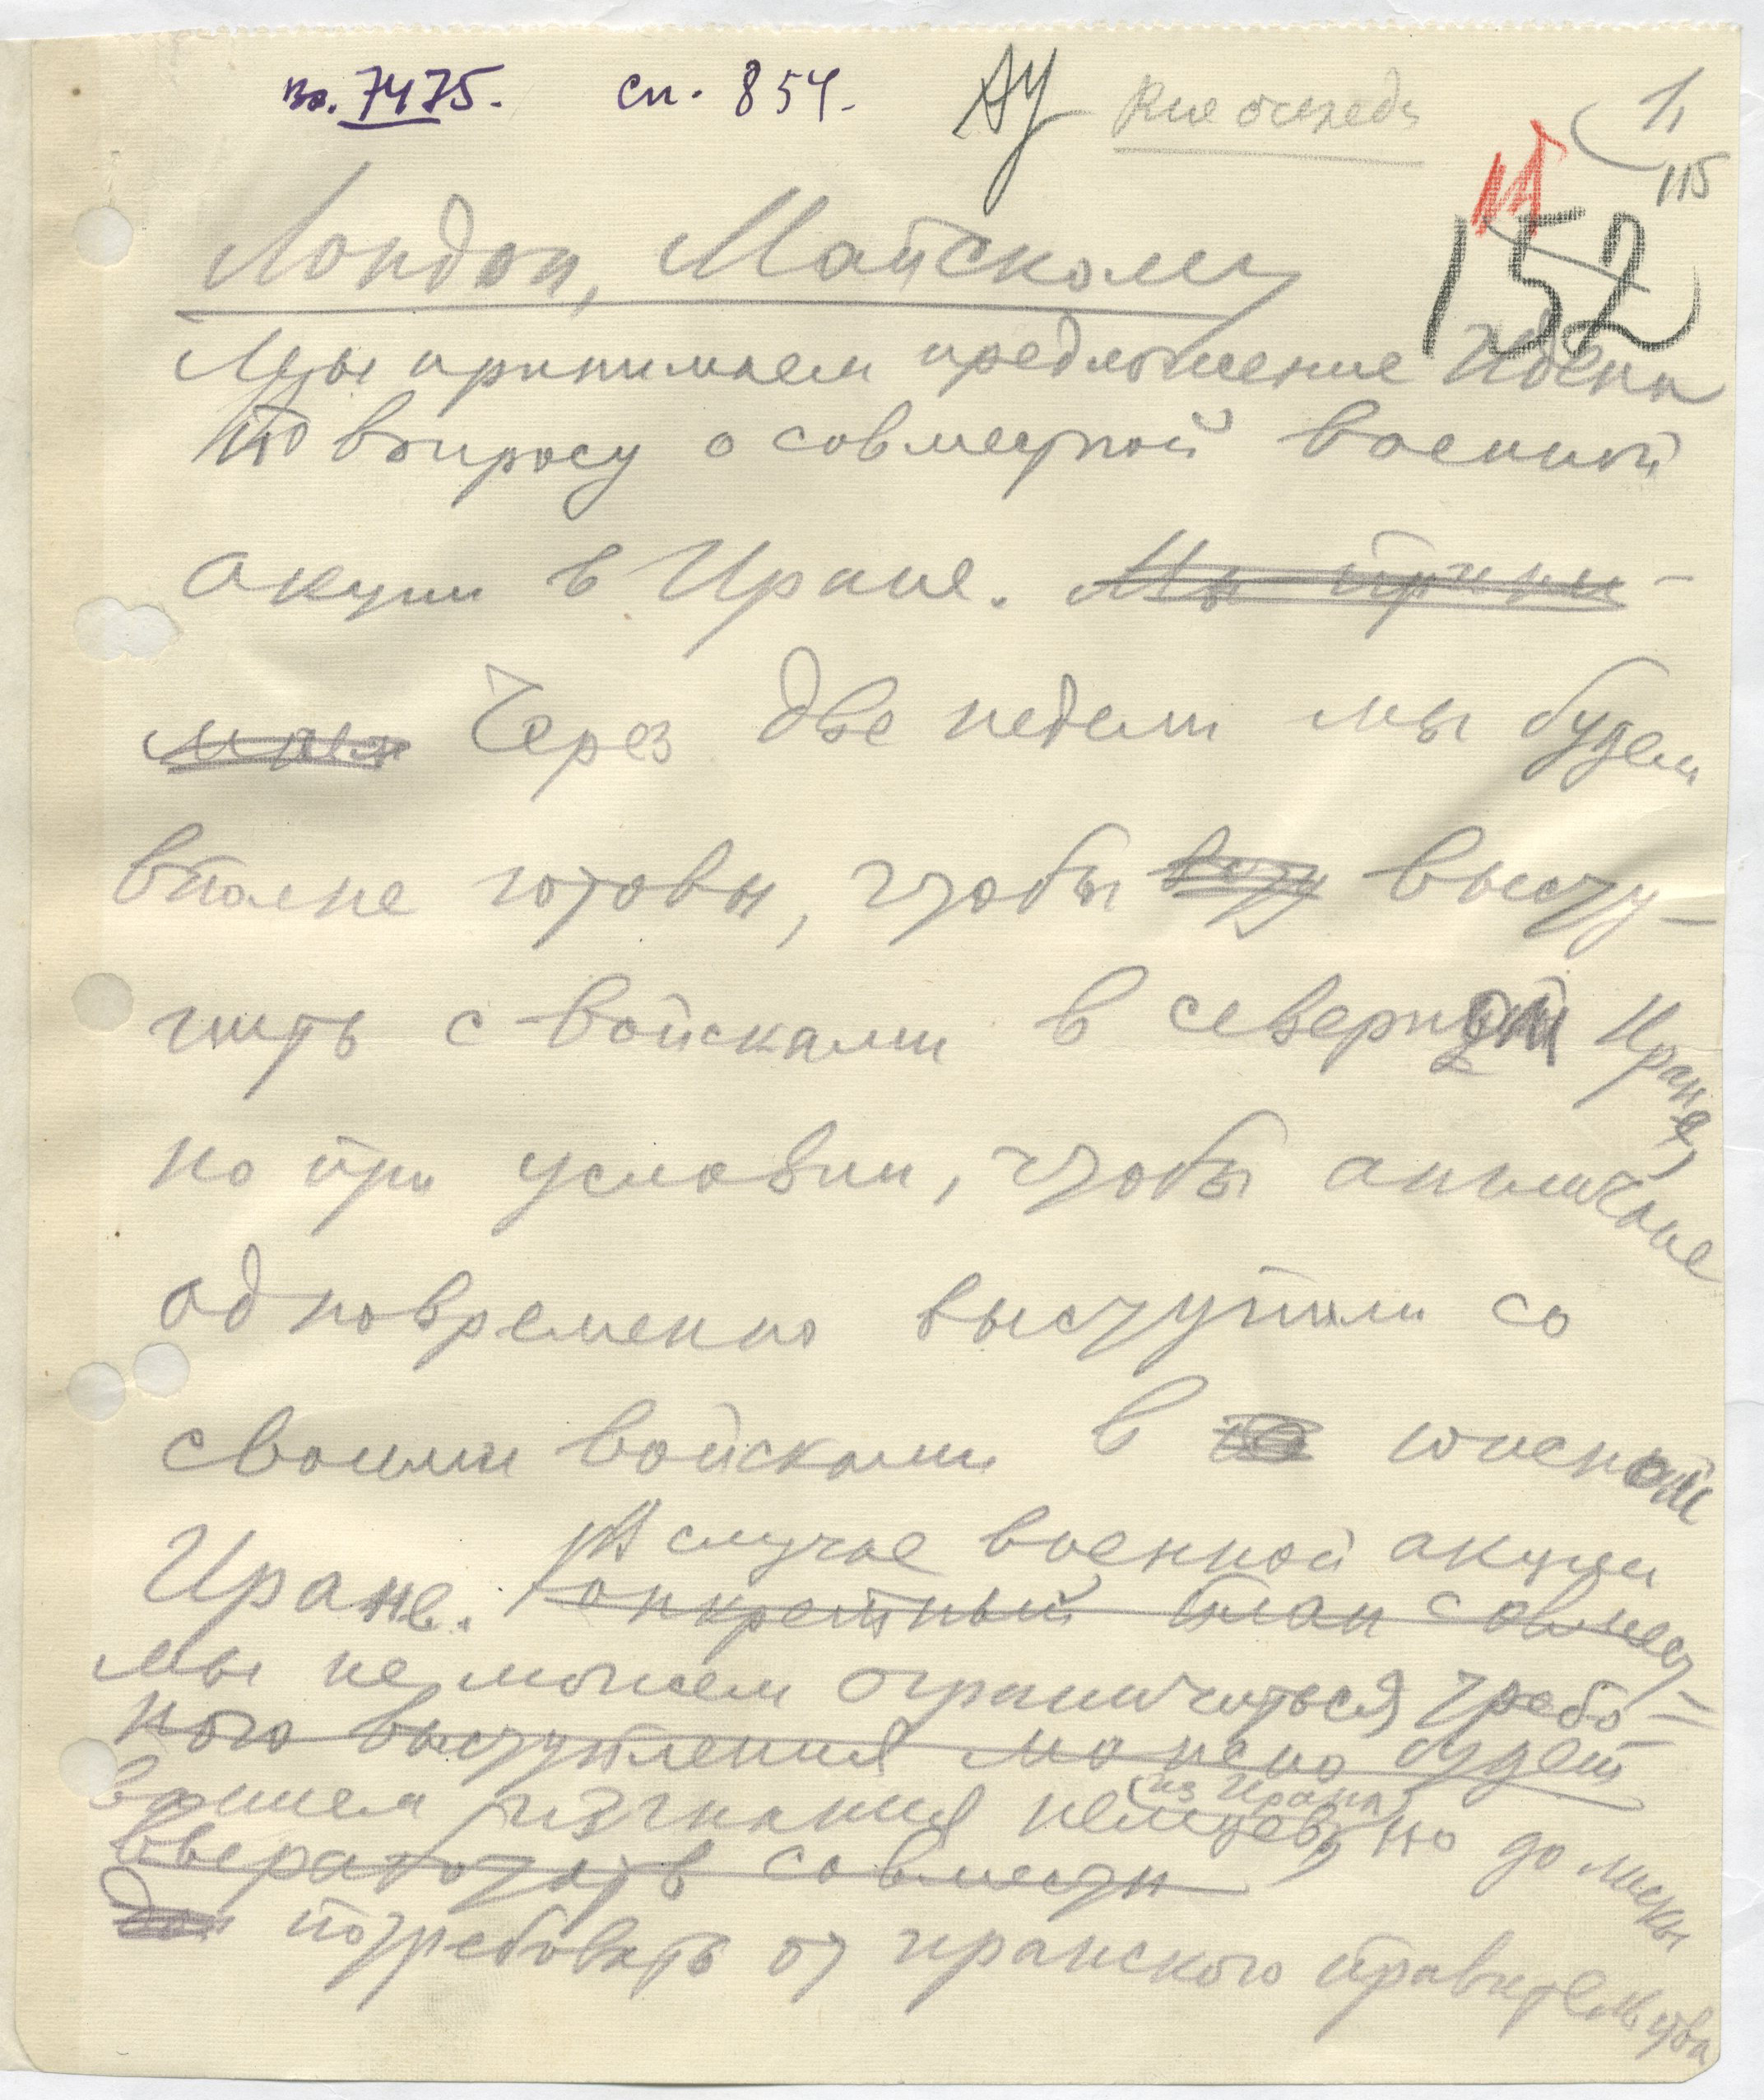 вх. 7475. сп. 854.
Вне очередь 1,
115
152
Лондон, Майскому
Мы принимаем предложение Идена
по вопросу о совместной военной
акции в Иране. Мы прини-
маем Через две недели мы будем
вполне готовы, чтобы высту-
пить с войсками в северном Иране,
но при условии, чтобы англичане
одновременно выступили со
своими войсками в южном
Иране. В случае военной акции
Конкретный план совмест-
мы не можем ограничиться требо-
ного выступления можно будет
ванием изгнания немцев из Ирана, но должны
выработать совместн
потребовать от иранского правительства